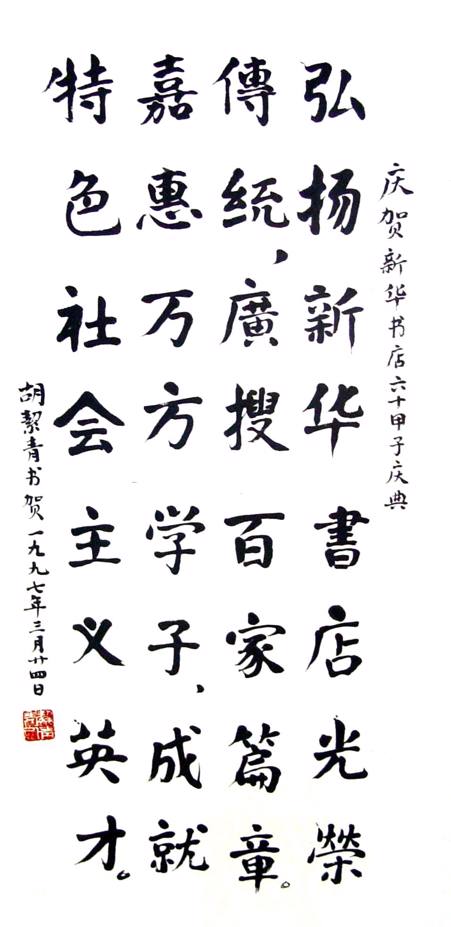 庆贺新华书店六十甲子庆典
弘扬新华書店光荣
傳统，廣搜百家篇章。
嘉惠万方学子，成就
特色社会主义英才。
胡絜青书贺一九九七年三月廿四日